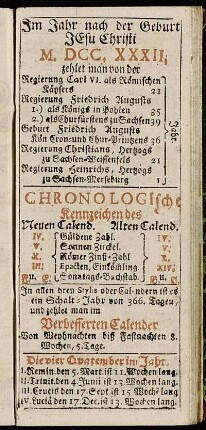 Im Jahr nach der Geburt
JEsu Christi
M. DCC, XXXII,
zehlet man von der
Regierung Carl VI. als Römischen
Käysers 21
Regierung Friedrich Augusts
1.) als Königs in Pohlen 35
2.) als Churfürstens zu Sachsen 39
Geburt Friedrich Augusts
Kön Cron und Chur-Printzens 36
Jahr.
Regierung Christians, Hertzogs
zu Sachsen-Weissenfels 21
Regierung Heinrichs, Hertzogs
zu Sachsen-Merseburg 1
CHRONOLOGIsche
Kennzeichen des
Neuen Calend. Alten Calend.
IV. Güldene Zahl. IV.
V. Sonnen Zirckel. V.
X. Römer Zinß-Zahl X.
III. Epacten, Einschling. XIV.
F. E. Sonntags-Buchstab. B. A.
In allen drey Stylis oder Calendern ist es
ein Schalt-Jahr von 366. Tagen,
und zehlet man im
Verbesserten Calender
Von Weyhnachten biß Fastnachten 8.
Wochen, 5. Tage.
Die vier Quatember im Jahr.
I. Remin. den 5. Mart. ist 11. Wochen lang.
II. Trinit. den 4. Junii ist 13. Wochen lang.
III. Crucis den 17 Sept ist 15 Woche lang
IV. Lucia den 17 Dec. ist 13. Wochen lang.